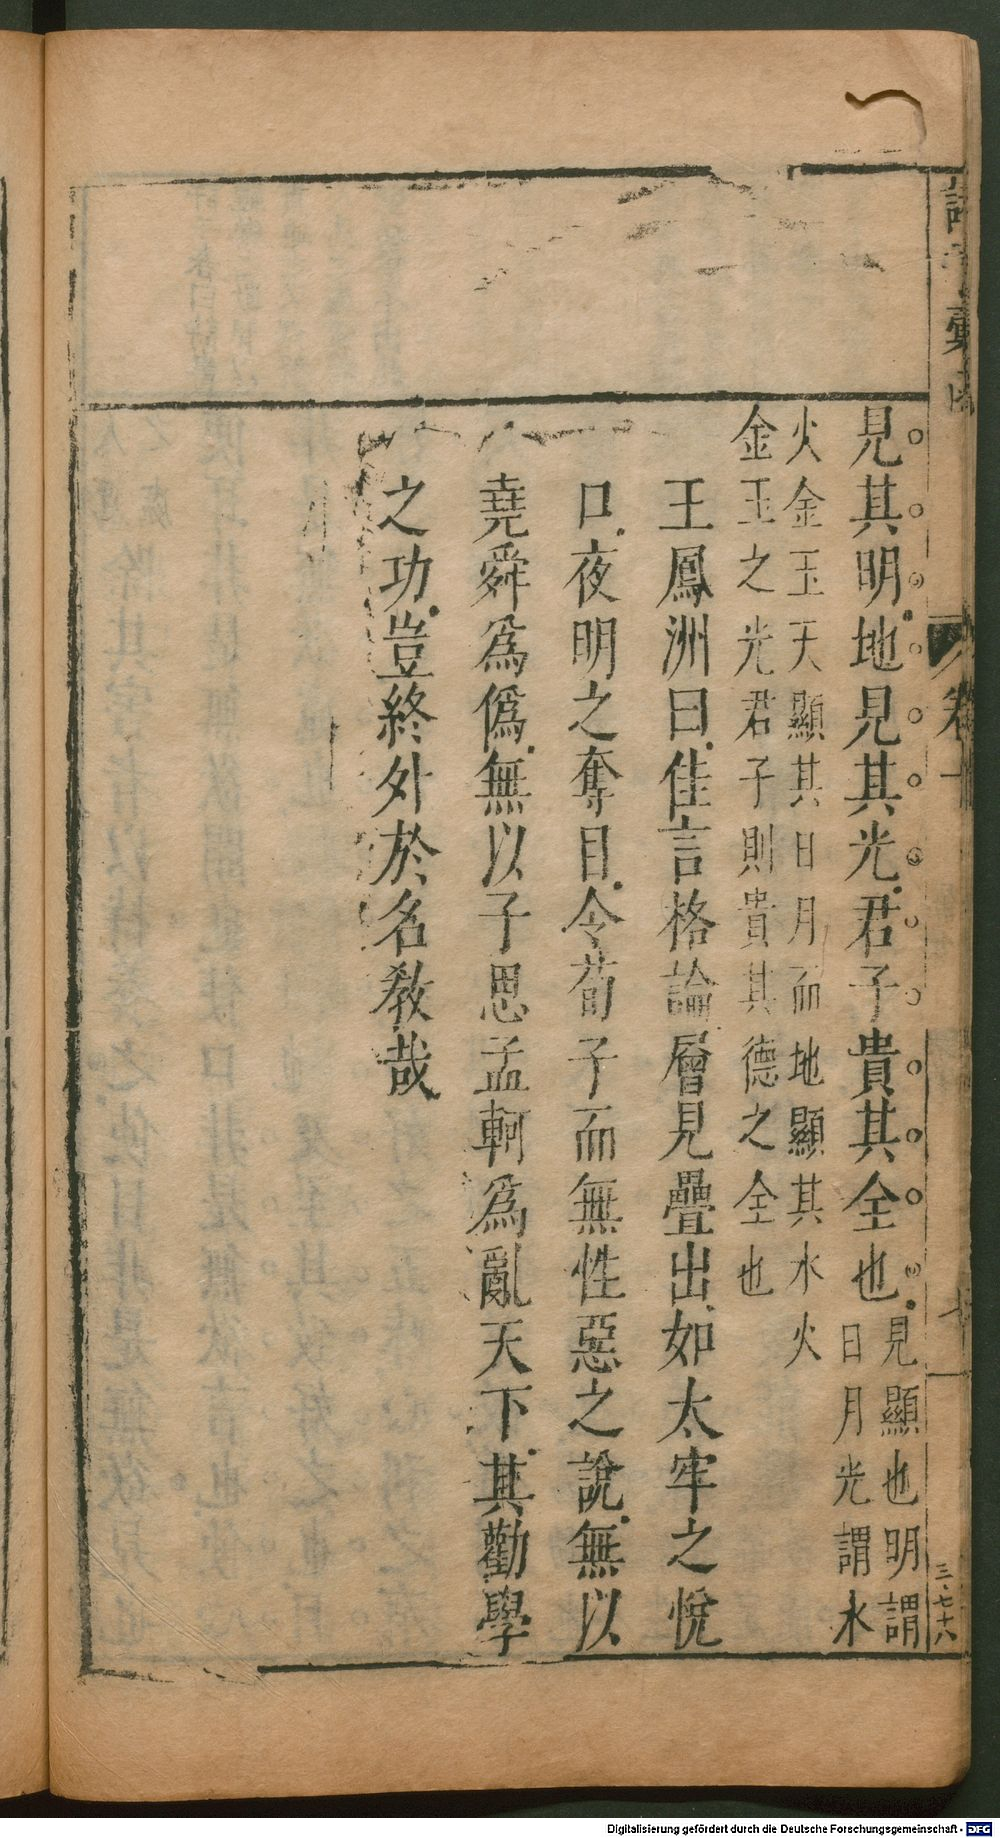 見其明地見其光君子貴其全也見顯也明謂
日月光謂水
火金玉天顯其日月而地顯其水火
金玉之光君子則貴其德之全也
王鳳洲曰佳言格論層見疊出如太牢之悅
口夜明之奪目令荀子而無性惡之說無以
堯舜爲僞無以子思孟軻爲亂天下其勸學
之功豈終外於名敎哉
卷十
三七十八
Digitalisierung gefördert durch die Deutsche Forschungsgemeinschaft - DFG